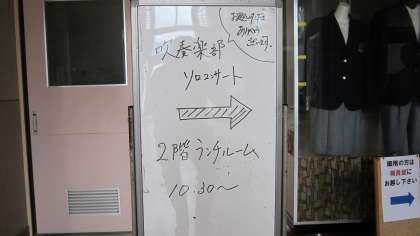 お越し下さり
ありがとう
ございます。
吹奏楽部
ソロコンサート
2階ランチルーム
10:30～
御用の方は
職員室に
お越し下さい